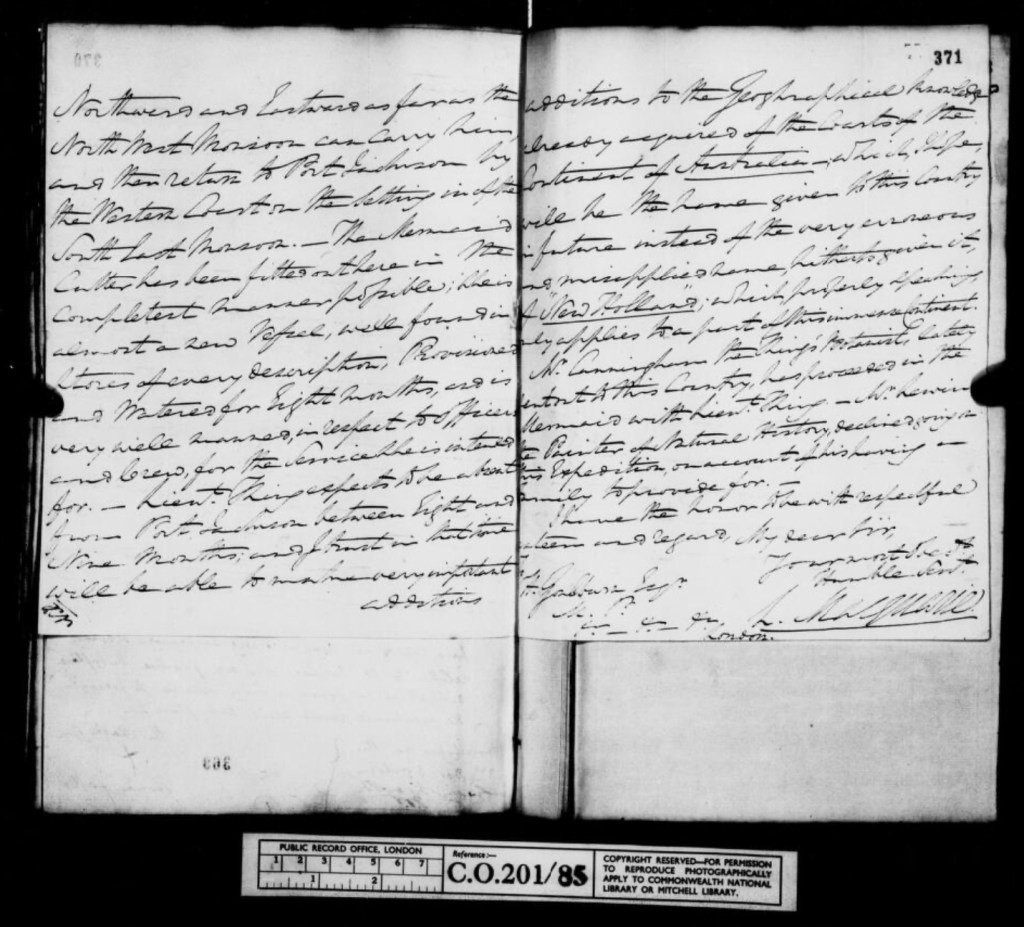 371
Northward and Eastward as far as the
North West Monsoon can carry him
and then return to Port Jackson by
the Western Coast on the setting in of the
South East Monsoon. — The Mermaid
Cutter has been fitted out here in the
completest manner possible; she is
almost a new Vessel, well found in
Stores of every description, Provisioned
and Watered for Eight Months, and is
very well manned, in respect to Officers
and Crew, for the Service she is intended
for. — Lieut. King expects to be absent
from Port Jackson between Eight and
Nine Months; and I trust in that time
will be able to make very important
additions
additions to the Geographical knowledge
already acquired of the Coasts of the
Continent of Australia — which, I hope,
will be the name given to this Country
in future instead of the very erroneous
and misapplied name, hitherto given it,
of "New Holland"; which properly speaking
only applies to a part of this immense Continent.
Mr. Cunningham the King's Botanist, lately
sent out to this Country, has proceeded in the
Mermaid with Lieut. King. — Mr. Lewin
the Painter of Natural History, declined going on
this Expedition, on account of his having a
family to provide for. —
I have the honor to be with respectful
esteem and regard, My dear Sir,
Your most Obedt.
Humble Servt.
L. Macquarie
H. Goulburn Esqr.
M. P.
&c. &c. &c.
London.
PUBLIC RECORD OFFICE, LONDON
1 2 3 4 5 6 7
1 2
Reference:—
C.O.201/85
COPYRIGHT RESERVED—FOR PERMISSION
TO REPRODUCE PHOTOGRAPHICALLY
APPLY TO COMMONWEALTH NATIONAL
LIBRARY OR MITCHELL LIBRARY.